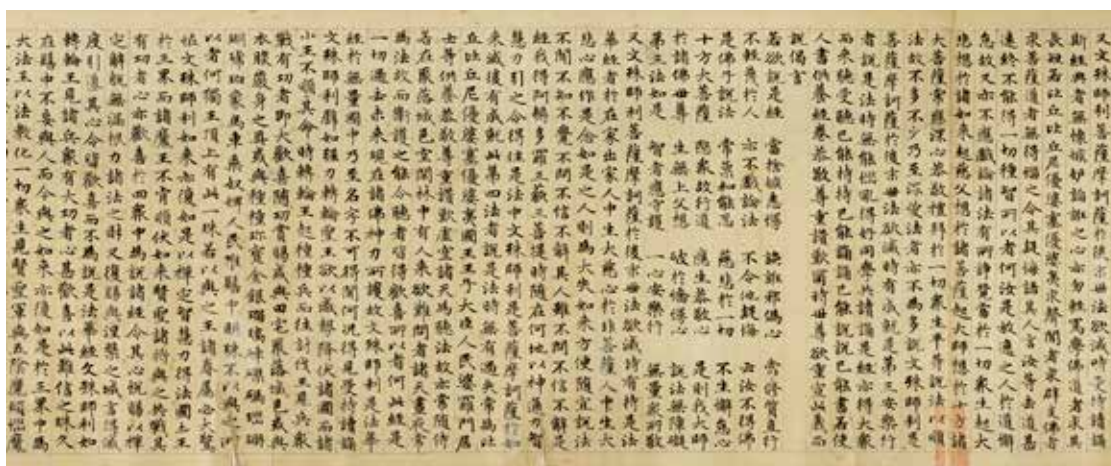 又文殊師利菩薩摩訶薩於後末世法欲滅時受持讀誦
斯經典者無懷嫉妬諂誑之心亦勿輕罵學佛道者求其
長短若比丘比丘尼優婆塞優婆夷求聲聞者求辟支佛者
求菩薩道者無得惱之令其疑悔語其人言汝等去道甚
遠終不能得一切種智所以者何汝是放逸之人於道懈
怠故又亦不應戲論諸法有所諍競當於一切衆生起大
悲想於諸如來起慈父想於諸菩薩起大師想於十方諸
大菩薩常應深心恭敬禮拜於一切衆生平等說法以順
法故不多不少乃至深愛法者亦不為多說文殊師利是
菩薩摩訶薩於後末世法欲滅時有成就是第三安樂行
者說是法時無能惱亂得好同學共讀誦是經亦得大衆
而來聽受聽已能持持已能誦誦已能說說已能書若使
人書供養經卷恭敬尊重讚歎爾時世尊欲重宣此義而
說偈言
若欲說是經 當捨嫉恚慢 諂誑邪偽心 常修質直行
不輕蔑於人 亦不戲論法 不令他疑悔 云汝不得佛
是佛子說法 常柔和能忍 慈悲於一切 不生懈怠心
十方大菩薩 愍衆故行道 應生恭敬心 是則我大師
於諸佛世尊 生無上父想 破於憍慢心 說法無障礙
第三法如是 智者應守護 一心安樂行 無量衆所敬
又文殊師利菩薩摩訶薩於後末世法欲滅時有持是法
華經者於在家出家人中生大慈心於非菩薩人中生大
悲心應作是念如是之人則為大失如來方便隨宜說法
不聞不知不覺不問不信不解其人雖不問不信不解是
經我得阿耨多羅三藐三菩提時隨在何地以神通力智
慧力引之令得住是法中文殊師利是菩薩摩訶薩於如
來滅後有成就此第四法者說是法時無有過失常為比
丘比丘尼優婆塞優婆夷國王王子大臣人民婆羅門居
士等供養恭敬尊重讚歎虛空諸天為聽法故亦常隨侍
若在聚落城邑空閑林中有人來欲難問者諸天晝夜常
為法故而衛護之能令聽者皆得歡喜所以者何此經是
一切過去未來現在諸佛神力所護故文殊師利是法華
經於無量國中乃至名字不可得聞何況得見受持讀誦
文殊師利譬如強力轉輪聖王欲以威勢降伏諸國而諸
小王不順其命時轉輪王起種種兵而往討伐王見兵衆
戰有功者即大歡喜隨功賞賜或與田宅聚落城邑或與
衣服嚴身之具或與種種珍寶金銀琉璃硨磲碼碯珊
瑚琥珀象馬車乘奴婢人民唯髻中明珠不以與之所
以者何獨王頂上有此一珠若以與之王諸眷屬必大驚
怪文殊師利如來亦復如是以禪定智慧力得法國土王
於三界而諸魔王不肯順伏如來賢聖諸將與之共戰其
有功者心亦歡喜於四衆中為說諸經令其心悅賜以禪
定解脫無漏根力諸法之財又復賜與涅槃之城言得滅
度引導其心令皆歡喜而不為說是法華經文殊師利如
轉輪王見諸兵衆有大功者心甚歡喜以此難信之珠久
在髻中不妄與人而今與之如來亦復如是於三界中為
大法王以法教化一切衆生見賢聖軍與五陰魔煩惱魔